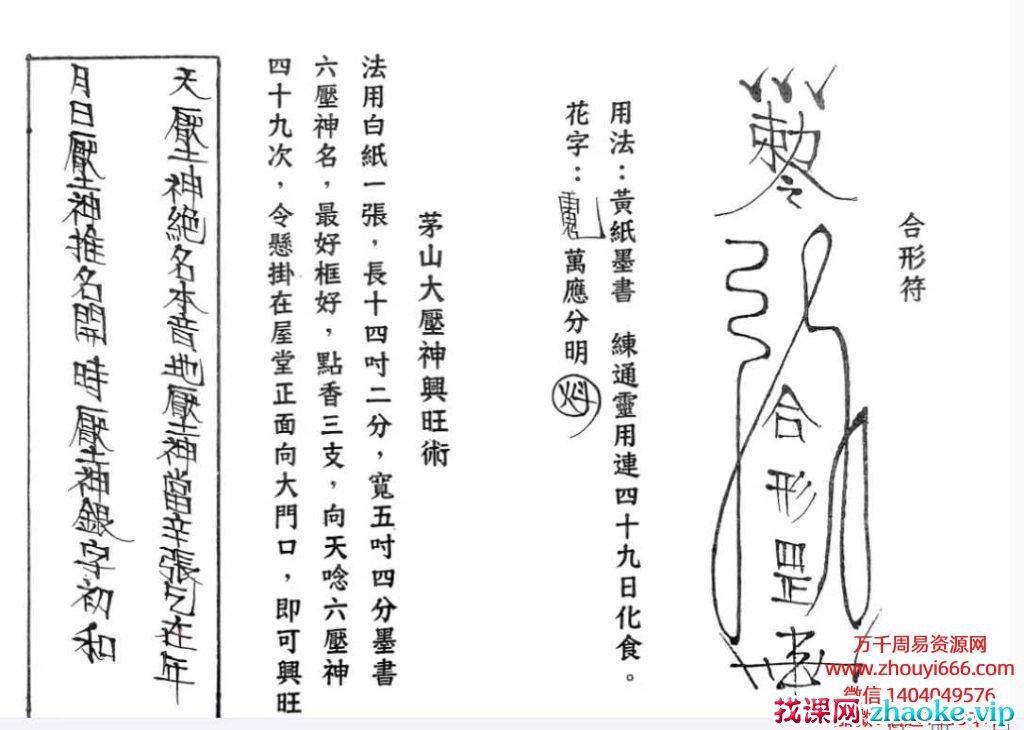 合形符
勅令
合形罡
用法：黃紙墨書　練通靈用連四十九日化食。
花字：萬應分明
茅山大壓神興旺術
法用白紙一張，長十四吋二分，寬五吋四分墨書
六壓神名，最好框好，點香三支，向天唸六壓神
四十九次，令懸掛在屋堂正面向大門口，即可興旺
天壓神絕名本音地壓神當辛張乞在年
月日壓神推名開時壓神銀字初和
万千周易资源网
www.zhouyi666.com
微信 1404049576
找课网 zhaoke.vip